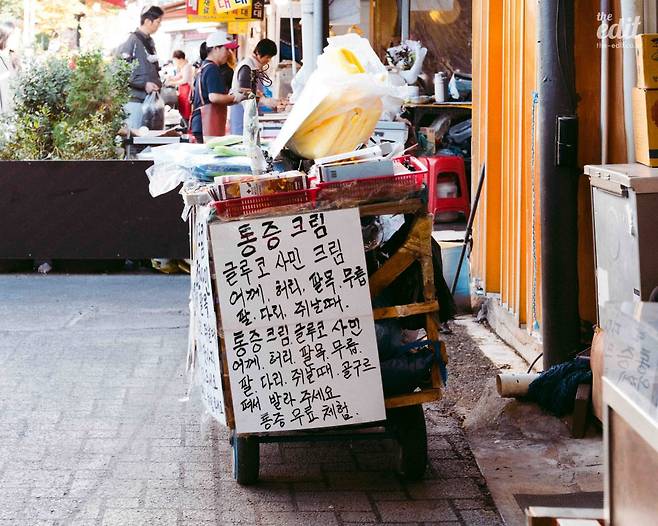 the
edit
the-edit.co.kr
통증 크림
글루코 사민 크림
어깨, 허리, 팔목, 무릎,
팔, 다리, 쥐날때.
통증크림, 글루코 사민
어깨, 허리, 팔목, 무릎.
팔, 다리, 쥐날때, 골구르
펴서 발라 주세요
통증 무료 체험.